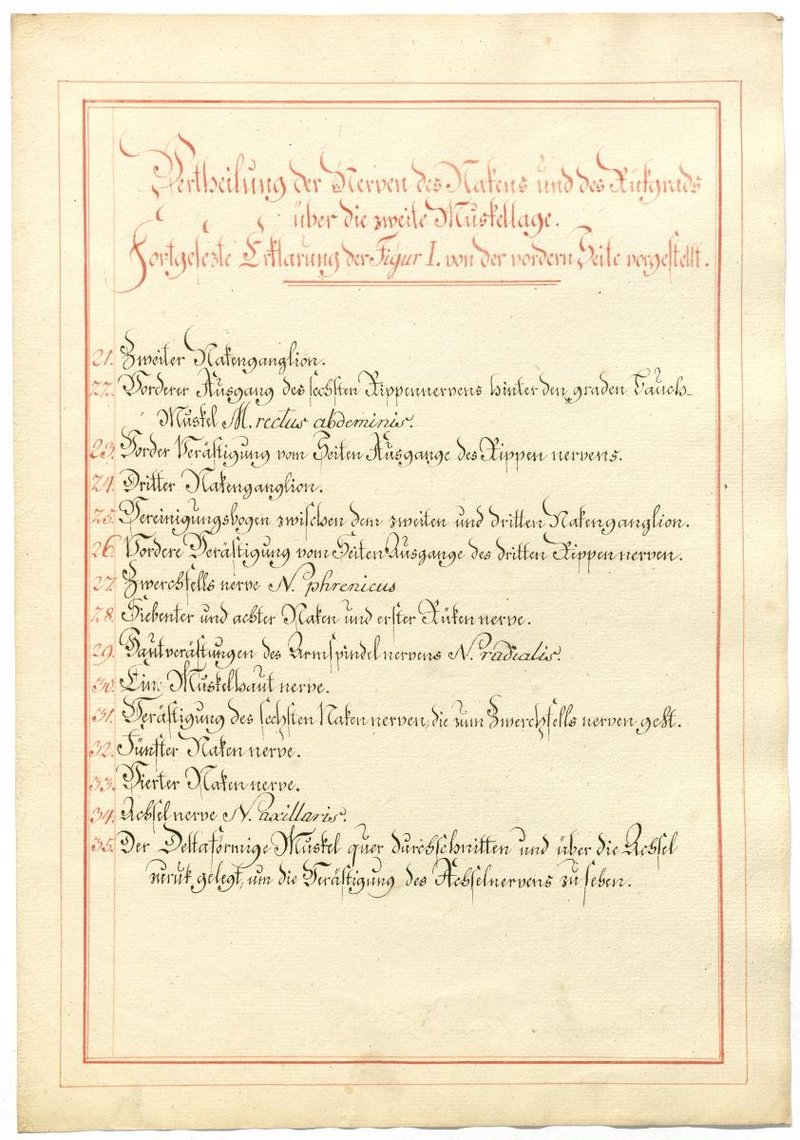 Vertheilung der Nerven des Nakens und des Rükgrads
über die zweite Muskellage.
Fortgesezte Erklärung der Figur I. von der vordern Seite vorgestellt.
21. Zweiter Nakenganglion.
22. Vorderer Ausgang des sechsten Rippennervens hinter den graden Bauch-
Muskel M. rectus abdeminis.
23. Vorder Verästigung vom Seiten Ausgange des Rippen nervens.
24. Dritter Nakenganglion.
25. Vereinigungsbogen zwischen dem zweiten und dritten Nakenganglion.
26. Vordere Verästigung vom Seiten Ausgange des dritten Rippen nerven.
27. Zwerchfells nerve N. phrenicus
28. Siebenter und achter Naken und erster Rüken nerve.
29. Hautverästungen des Armspindel nervens N. radialis.
30. Ein: Muskelhaut nerve.
31. Verästigung des sechsten Naken nerven, die zum Zwerchfells nerven geht.
32. Fünfter Naken nerve.
33. Vierter Naken nerve.
34. Achsel nerve N. axillaris.
35. Der Deltaförmige Muskel quer durchschnitten und über die Achsel
zuruk gelegt, um die Verästigung des Achselnervens zu sehen.